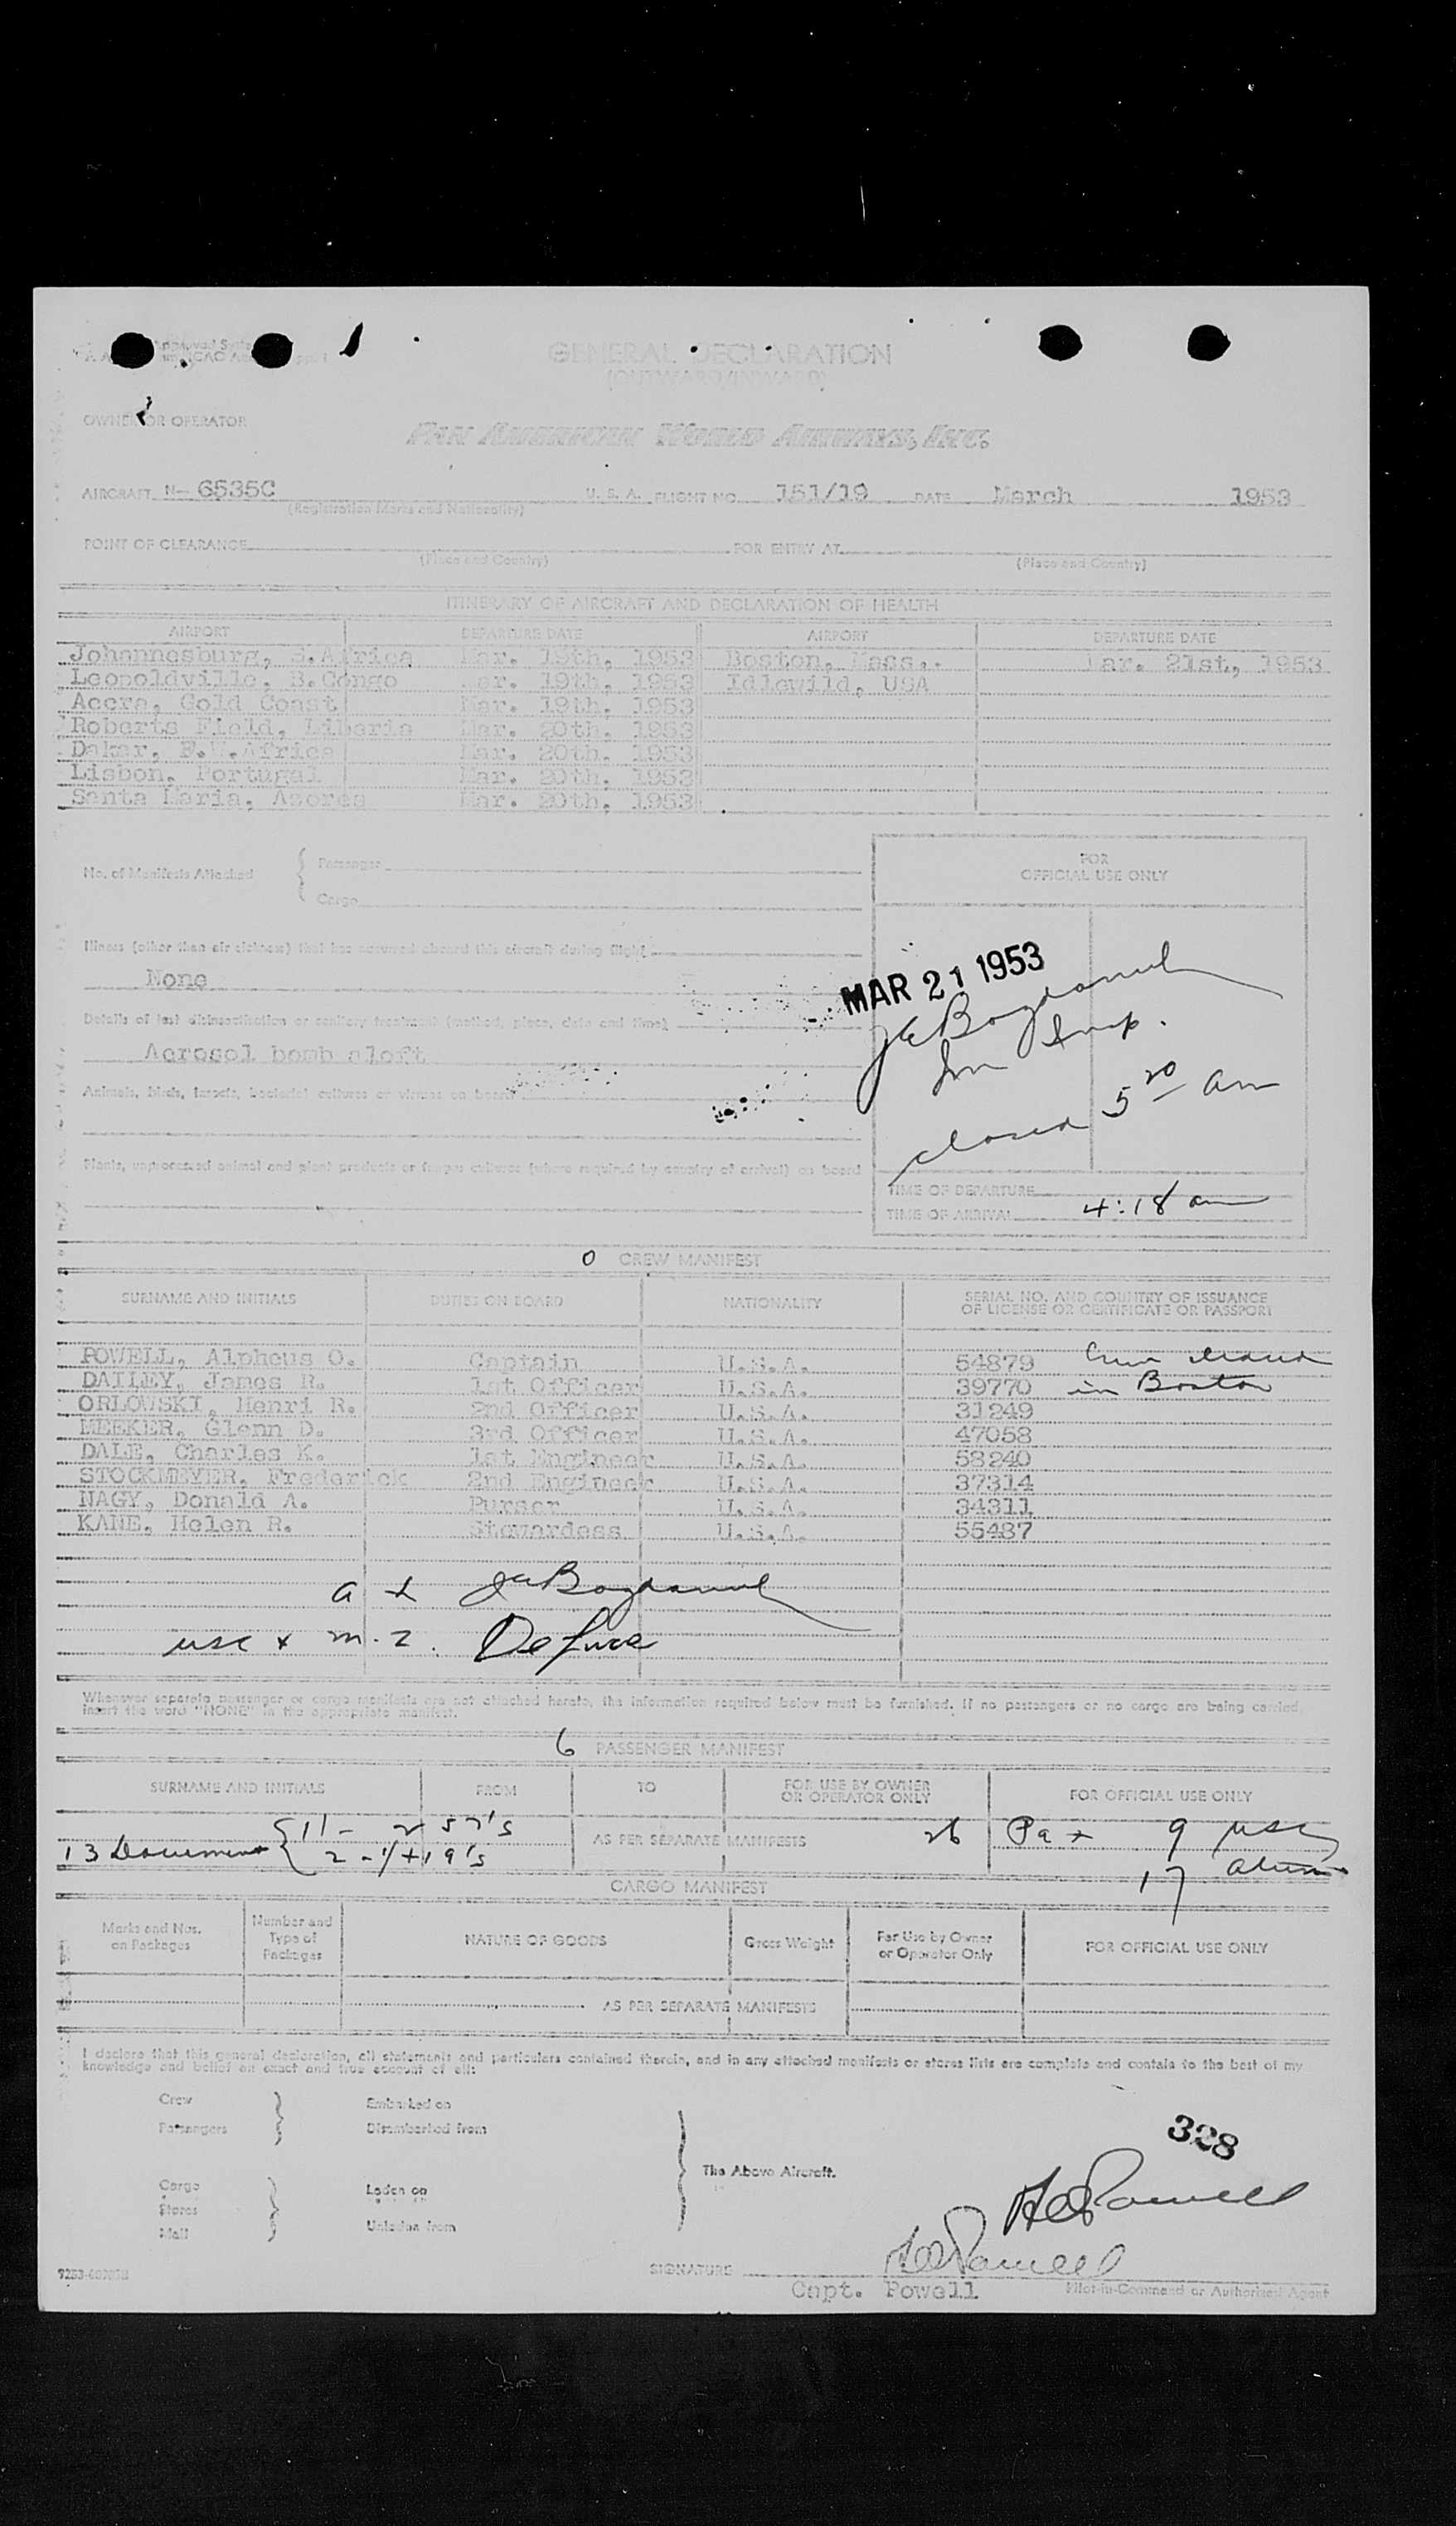 GENERAL DECLARATION
(OUTWARD/INWARD)
OWNER OR OPERATOR
PAN AMERICAN WORLD AIRWAYS, INC.
AIRCRAFT N- 6535C U. S. A. FLIGHT NO. 151/19 DATE March 1953
(Registration Marks and Nationality)
POINT OF CLEARANCE FOR ENTRY AT
(Place and Country) (Place and Country)
ITINERARY OF AIRCRAFT AND DECLARATION OF HEALTH
AIRPORT DEPARTURE DATE AIRPORT DEPARTURE DATE
Johannesburg, S.Africa Mar. 19th, 1953 Boston, Mass. Mar. 21st, 1953
Leopoldville, B.Congo Mar. 19th, 1953 Idlewild, USA
Accra, Gold Coast Mar. 19th, 1953
Roberts Field, Liberia Mar. 20th, 1953
Dakar, F.W.Africa Mar. 20th, 1953
Lisbon, Portugal Mar. 20th, 1953
Santa Maria, Azores Mar. 20th, 1953
No. of Manifests Attached
Passenger
Cargo
FOR
OFFICIAL USE ONLY
Illness (other than air sickness) that has occurred aboard this aircraft during flight
None
MAR 21 1953
Details of last disinsectisation or sanitary treatment (method, place, date and time)
Aerosol bomb aloft
Imm Insp.
Animals, birds, insects, bacterial cultures or viruses on board
closed 5 20 am
Plants, unprocessed animal and plant products or fungus cultures (where required by country of arrival) on board
TIME OF DEPARTURE
TIME OF ARRIVAL 4:18 am
CREW MANIFEST
SURNAME AND INITIALS DUTIES ON BOARD NATIONALITY SERIAL NO. AND COUNTRY OF ISSUANCE
OF LICENSE OR CERTIFICATE OR PASSPORT
POWELL, Alpheus O. Captain U.S.A. 54879 Crew cleared
DAILEY, James R. 1st Officer U.S.A. 39770 in Boston
ORLOWSKI, Henri R. 2nd Officer U.S.A. 31249
MEEKER, Glenn D. 3rd Officer U.S.A. 47058
DALE, Charles K. 1st Engineer U.S.A. 58240
STOCKMEYER, Frederick 2nd Engineer U.S.A. 37314
NAGY, Donald A. Purser U.S.A. 34311
KANE, Helen R. Stewardess U.S.A. 55487
Whenever separate passenger or cargo manifests are not attached hereto, the information required below must be furnished. If no passengers or no cargo are being carried,
insert the word "NONE" in the appropriate manifest.
6 PASSENGER MANIFEST
SURNAME AND INITIALS FROM TO FOR USE BY OWNER
OR OPERATOR ONLY FOR OFFICIAL USE ONLY
11 - 257's AS PER SEPARATE MANIFESTS 26 Pax 9 usc
13 Documents
17 aliens
CARGO MANIFEST
Marks and Nos.
on Packages Number and
Type of
Packages NATURE OF GOODS Gross Weight For Use by Owner
or Operator Only FOR OFFICIAL USE ONLY
AS PER SEPARATE MANIFESTS
I declare that this general declaration, all statements and particulars contained therein, and in any attached manifests or stores lists are complete and contain to the best of my
knowledge and belief an exact and true account of all:
Crew Embarked on
Passengers Disembarked from
328
The Above Aircraft.
Cargo Laden on
Stores
Mail Unladen from
SIGNATURE AO Powell
Capt. Powell Pilot-in-Command or Authorized Agent